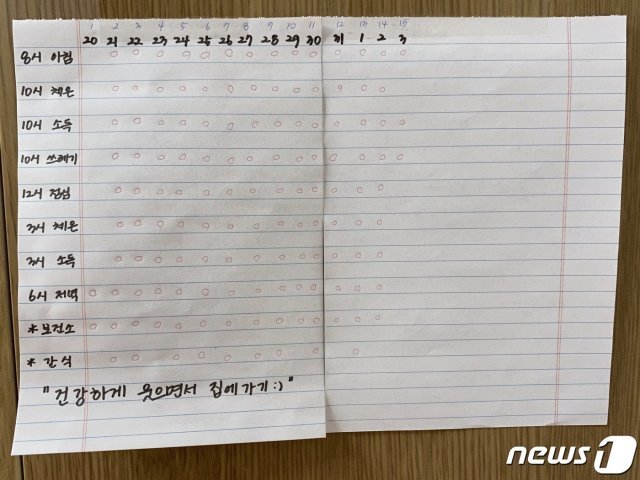 1 2 3 4 5 6 7 8 9 10 11 12 13 14 15
20 21 22 23 24 25 26 27 28 29 30 31 1 2 3
8시 아침
10시 체온
10시 소독
10시 쓰레기
12시 점심
3시 체온
3시 소독
6시 저녁
* 보건소
* 간식
"건강하게 웃으면서 집에가기:)"
news1